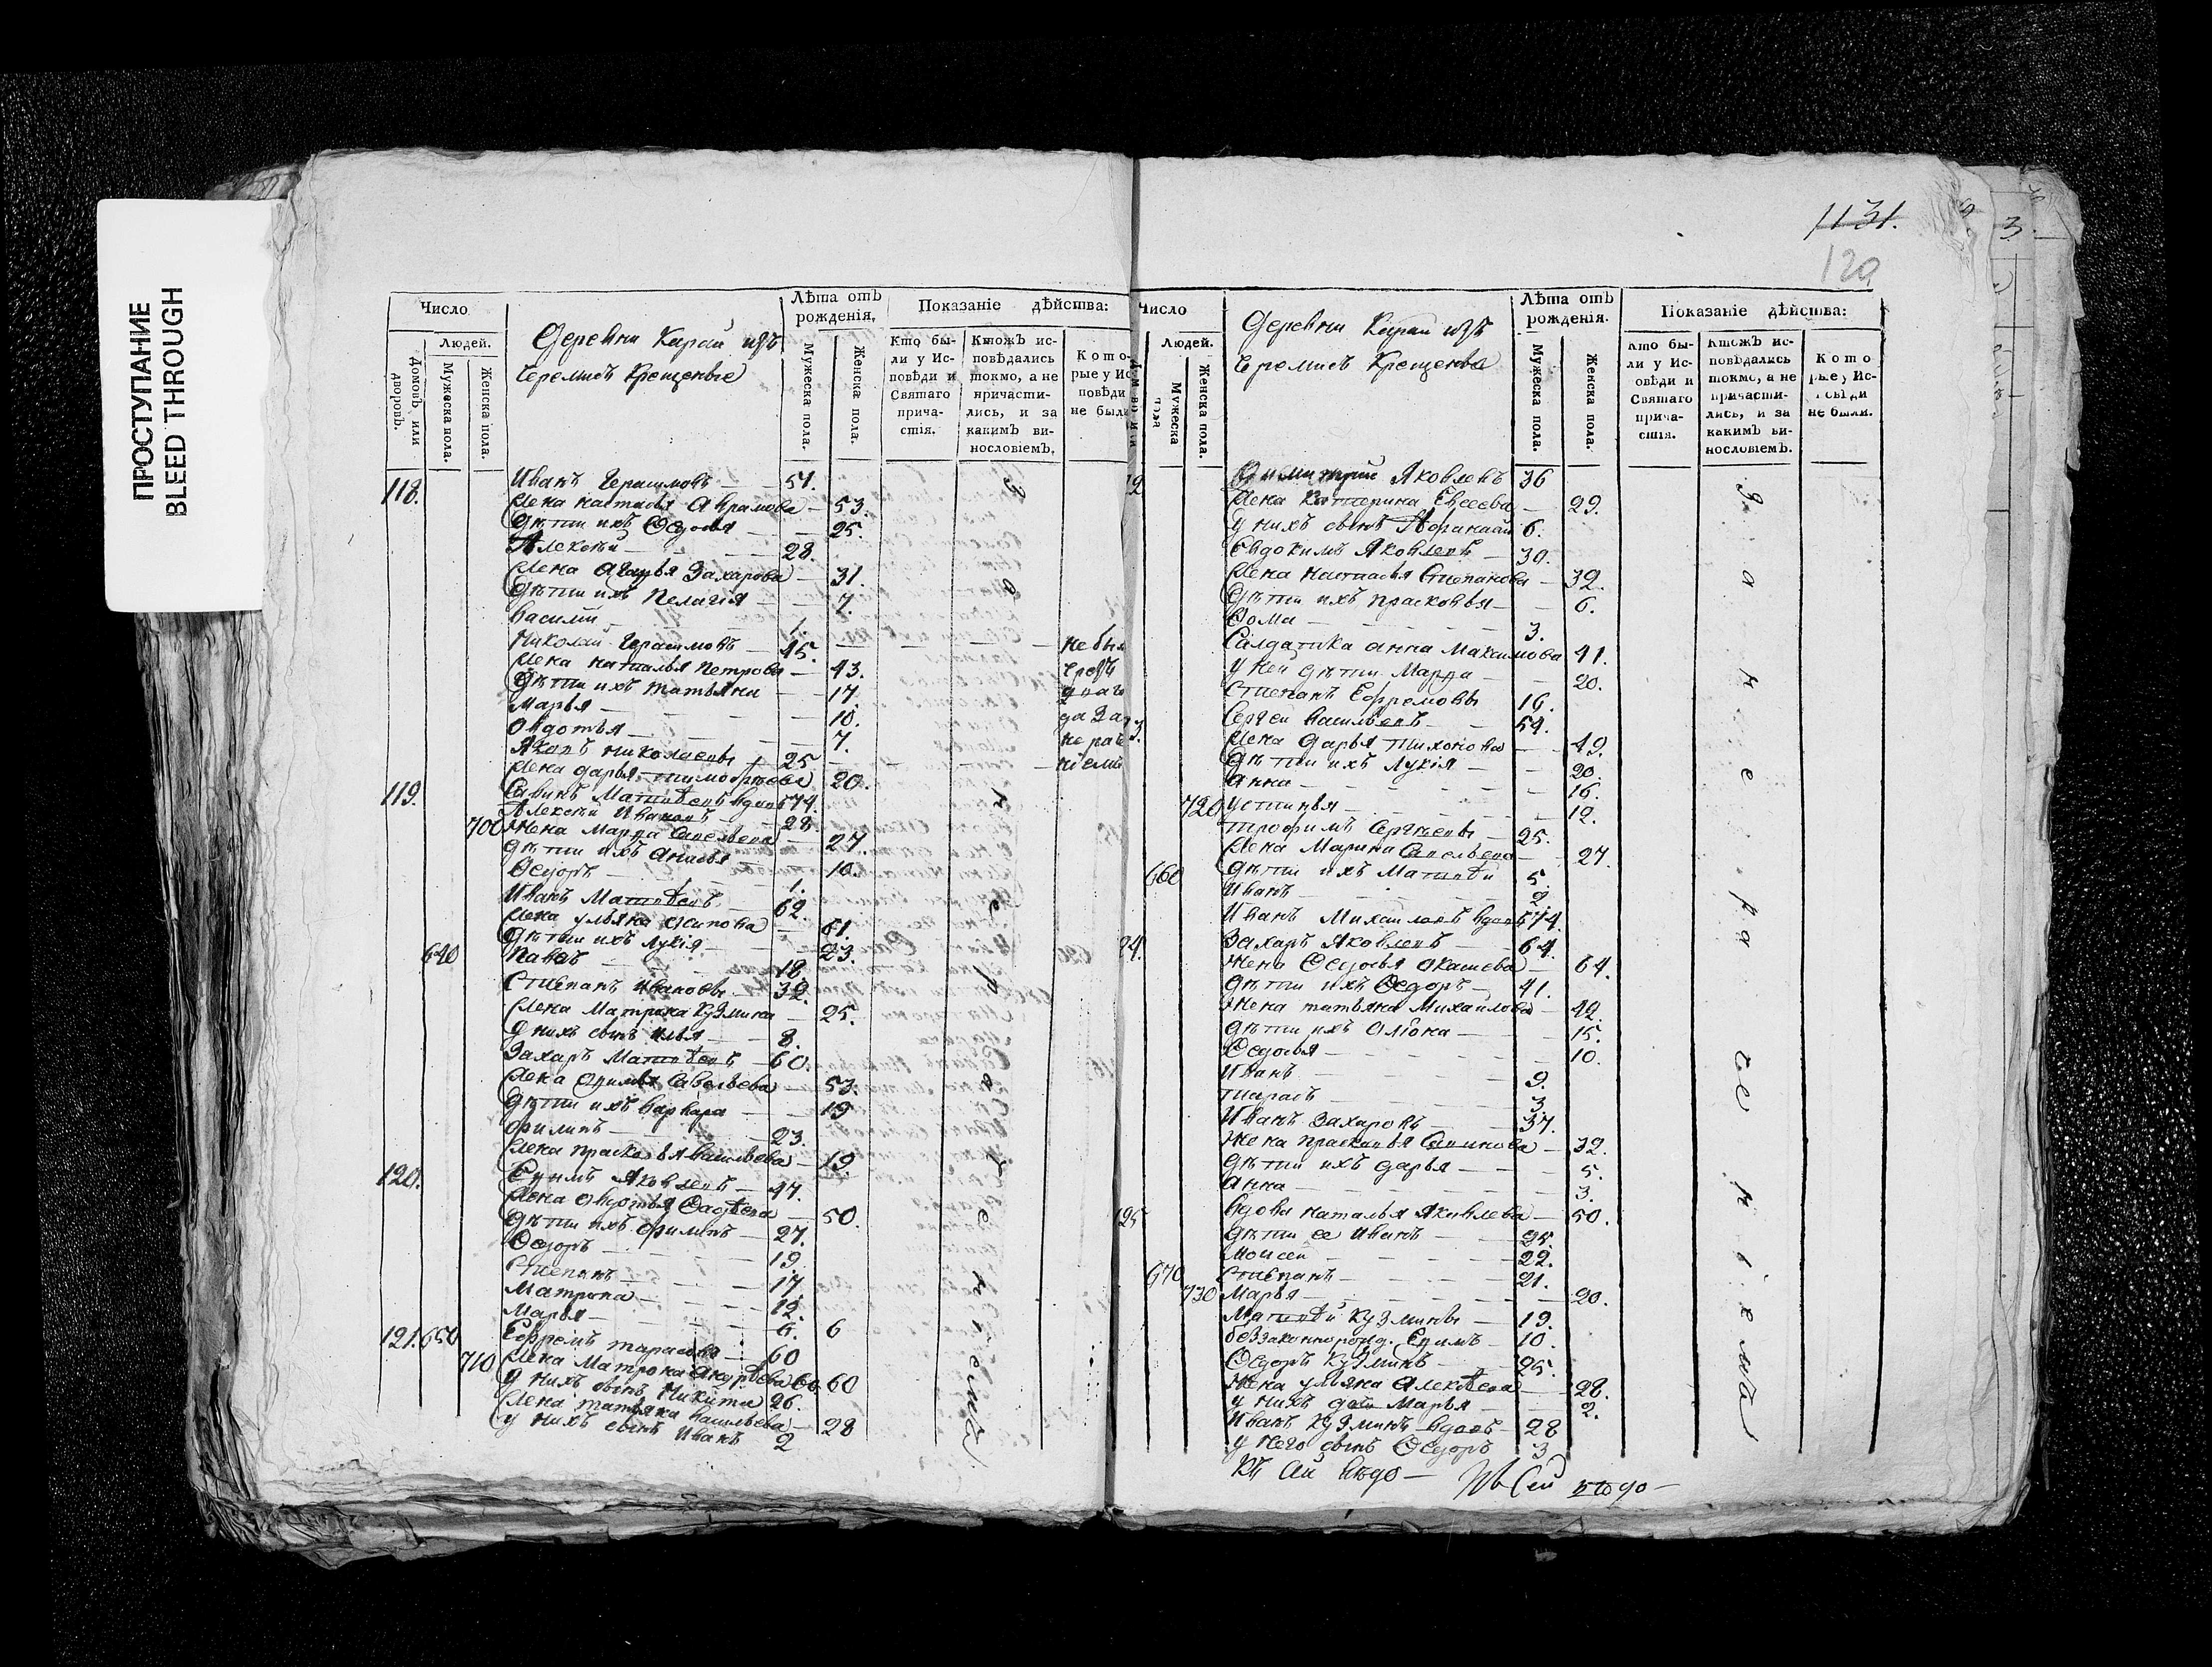 ПРОСТУПАНИЕ
BLEED THROUGH
1131.
120
3.
Число
Людей.
Домовъ, или дворовъ.
Мужеска пола.
Женска пола.
Деревни Карай изъ
Черемисъ Крещеные
Лѣта отъ рожденія.
Мужеска пола.
Женска пола.
Показаніе дѣйства:
Кто были у Исповѣди и Святаго причастія.
Ктожъ исповѣдались токмо, а не причастились, и за какимъ винословіемъ.
Которые у Исповѣди не были
118. Иванъ Герасимовъ 54.
Жена Настасья Аврамова 53.
Дѣти ихъ Ѳедосья 25.
Алексѣй 28.
Жена Агафья Захарова 31.
Дѣти ихъ Пелагія 7.
Василій 1.
Николай Герасимовъ 45.
Жена Наталья Петрова 43.
Дѣти ихъ Татьяна 17.
Марья 10.
Овдотья 7.
Яковъ Николаевъ 25
Жена Дарья Тимоѳѣева 20.
119. Савинъ Матвѣевъ вдовъ 74.
Алексѣй Ивановъ 28
700 Жена Марѳа Савельева 27.
Дѣти ихъ Анисья 10.
Ѳедоръ 1.
Иванъ Матвѣевъ 62.
Жена Ульяна Осипова 61.
Дѣти ихъ Лукія 23.
640 Павелъ 18.
Степанъ Ивановъ 32.
Жена Матрена Кузмина 25.
У нихъ сынъ Илья 8.
Захаръ Матвѣевъ 60.
Жена Савельева 53.
Дѣти ихъ Варвара 19
Филипъ 23.
Жена Прасковья Васильева 19.
120. Ефимъ Яковлевъ 47.
Жена Овдотья Ѳадѣева 50.
Дѣти ихъ Филипъ 27.
Ѳедоръ 19
Степанъ 17.
Матрена 12.
Марья 6. 6
121. 650 Ефремъ Тарасовъ 60
710 Жена Матрона Андрѣева 60 60
У нихъ сынъ Никита 26.
Жена Татьяна Васильева 28
У нихъ сынъ Иванъ 2
за некраткіемъ
Число
Людей.
Мужеска пола
Женска пола.
Деревни Карай изъ
Черемисъ Крещеные
Лѣта отъ рожденія.
Мужеска пола.
Женска пола.
Показаніе дѣйства:
Кто были у Исповѣди и Святаго причастія.
Ктожъ исповѣдались токмо, а не причастились, и за какимъ винословіемъ.
Которые у Исповѣди не были.
Димитрій Яковлевъ 36
Жена Катерина Евсеева 29.
У нихъ сынъ Аѳанасій 6.
Евдокимъ Яковлевъ 30.
Жена Настасья Степанова 32.
Дѣти ихъ Прасковья 6.
Ѳома 3.
Салдатка Анна Максимова 41.
У ней дѣти Марѳа 20.
Степанъ Ефремовъ 16.
Сергей Васильевъ 54.
Жена Дарья Тихонова 49.
Дѣти ихъ Лукія 20.
Анна 16.
720 Устинья 12.
Трофимъ Сергѣевъ 25.
Жена Марина Савельева 27.
660 Дѣти ихъ Матвѣй 5.
Иванъ 2.
Иванъ Михаиловъ вдовъ 74.
24. Захаръ Яковлевъ 64.
Жена Ѳедосья 64.
Дѣти ихъ Ѳедоръ 41.
Жена Татьяна Михаилова 42.
Дѣти ихъ Алона 15.
Ѳедосья 10.
Иванъ 9.
Тарасъ 3.
Иванъ Захаровъ 37.
Жена Прасковья Савинова 32.
Дѣти ихъ Дарья 5.
Анна 3.
125 Вдова Наталья Яковлева 50.
Дѣти ее Иванъ 25.
Моисей 22.
670 Степанъ 21.
730 Марья 20.
Матвѣй Кузминъ 19.
беззаконнорожд. Ефимъ 10.
Ѳедоръ Кузминъ 25.
Жена Ульяна Алексѣева 28.
У нихъ дочь Марья 2.
Иванъ Кузминъ вдовъ 28
У него сынъ Ѳедоръ 3